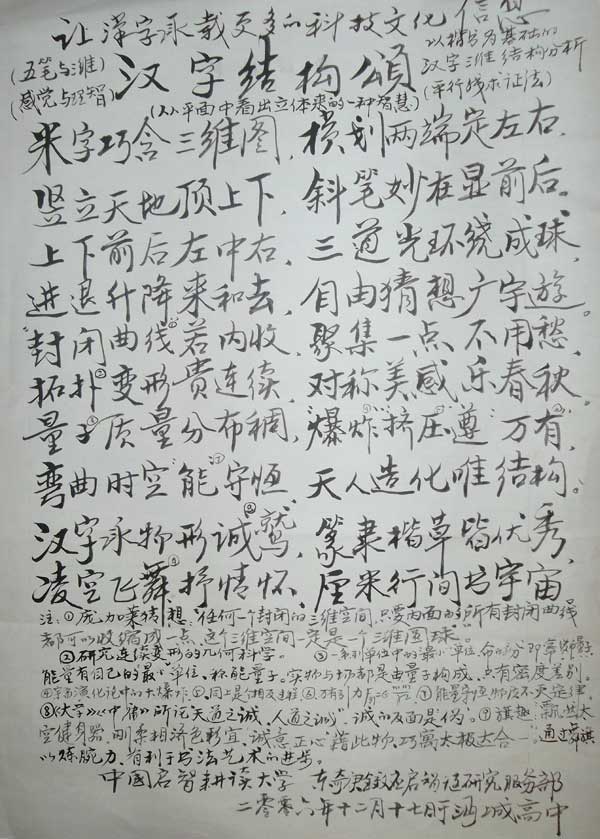 让汉字承载更多的科技文化信息
(五笔与三维)
(感觉与理智)
汉字结构頌
以楷书为基础的
汉字三维结构分析
(平行线求证法)
(从平面中看出立体来的一种智慧)
米字巧含三维图，横划两端定左右，
竖立天地顶上下，斜笔妙在显前后。
上下前后左中右，三道光环绕成球，
进退升降来和去，自由猜想广宇遊。
"封闭曲线①"若内收，聚集一点不用愁，
拓扑②变形贵连续，对称美感乐春秋，
量子③质量分布稠，"爆炸④""挤压⑤"遵"万有⑥"，
弯曲时空"能⑦"守恒，天人造化唯结构。
汉字承物形诚⑧鹫，篆隶楷草皆优秀，
凌空飞舞⑨抒情怀，厘米行间书宇宙
注：①庞加莱猜想："任何一个封闭的三维空间，只要内面的所有封闭曲线
都可以收缩成一点，这个三维空间一定是一个三维圆球。"
②研究连续变形的几何科学。③一系列单位中的最小单位
能量有自己的最小单位，称能量子。实物与场都是由量子构成，只有密度差别。
④宇宙演化论中的大爆炸⑤⑥万有引力⑦能量守恒
⑧《大学》《中庸》所论天道之诚，人道之诚，诚的反面是伪。⑨旗
空健身器，刚柔相济色彩宜，"诚意正心"藉此物，巧寓太极达合一。通过舞旗
以炼腕力，有利于书法艺术的进步。
中国启智耕读大学 研究服务部
二零零六年十二月十七日于海城高中